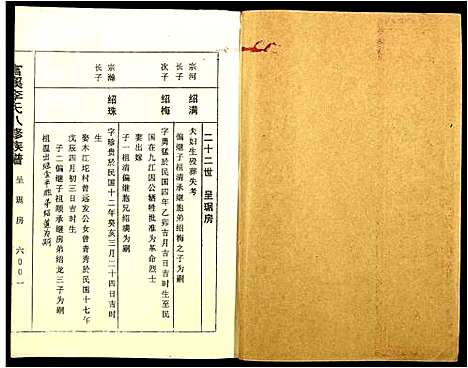 二十二世 呈琚房
宗河
长子 绍满
夫妇生殁葬失考
偏继子祖清承继胞弟绍梅之子为嗣
次子 绍梅
字勇猛於民国四年乙卯吉月吉日吉时生至民
国在九江因公牺牲批准为革命烈士
妻出嫁
子一祖清偏继胞兄绍满为嗣
宗瀚
长子 绍珠
字珍贵於民国十二年癸亥三月二十四日吉时
生
娶木江坨村曾远发公女曾青秀於民国十七年
戊辰四月初三日吉时生
子二偏继子祖顺承继房弟绍龙三子为嗣
富溪李氏八修族谱
呈琚房
六〇〇一